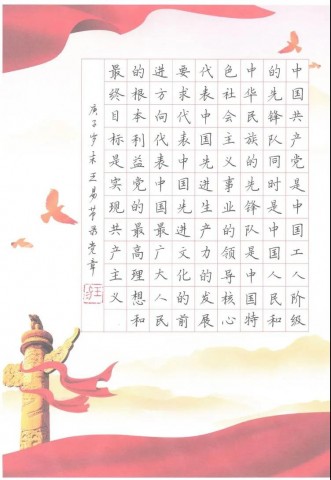 中国共产党是中国工人阶级
的先锋队同时是中国人民和
中华民族的先锋队是中国特
色社会主义事业的领导核心
代表中国先进生产力的发展
要求代表中国先进文化的前
进方向代表中国最广大人民
的根本利益党的最高理想和
最终目标是实现共产主义
庚子岁末王易节录党章